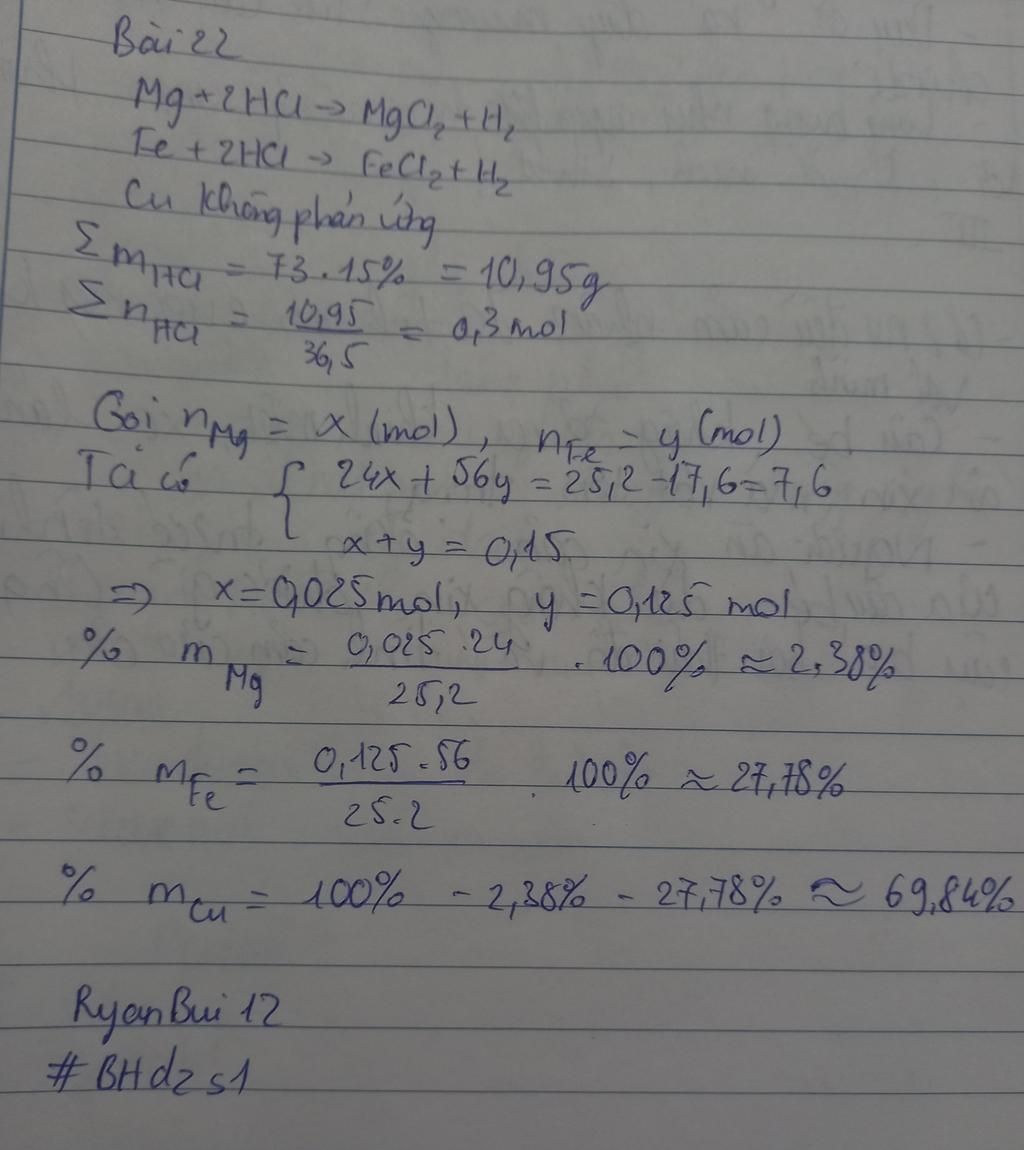 Bài 22
Mg + 2HCl → MgCl₂ + H₂
Fe + 2HCl → FeCl₂ + H₂
Cu không phản ứng
Σ m_HCl = 73 . 15% = 10,95g
Σ n_HCl = 10,95 / 36,5 = 0,3 mol
Gọi n_Mg = x (mol), n_Fe = y (mol)
Ta có { 24x + 56y = 25,2 - 17,6 = 7,6
x + y = 0,15
⇒ x = 0,025 mol, y = 0,125 mol
% m_Mg = 0,025 . 24 / 25,2 . 100% ≈ 2,38%
% m_Fe = 0,125 . 56 / 25.2 . 100% ≈ 27,78%
% m_Cu = 100% - 2,38% - 27,78% ≈ 69,84%
RyanBui 12
#BHdz s1